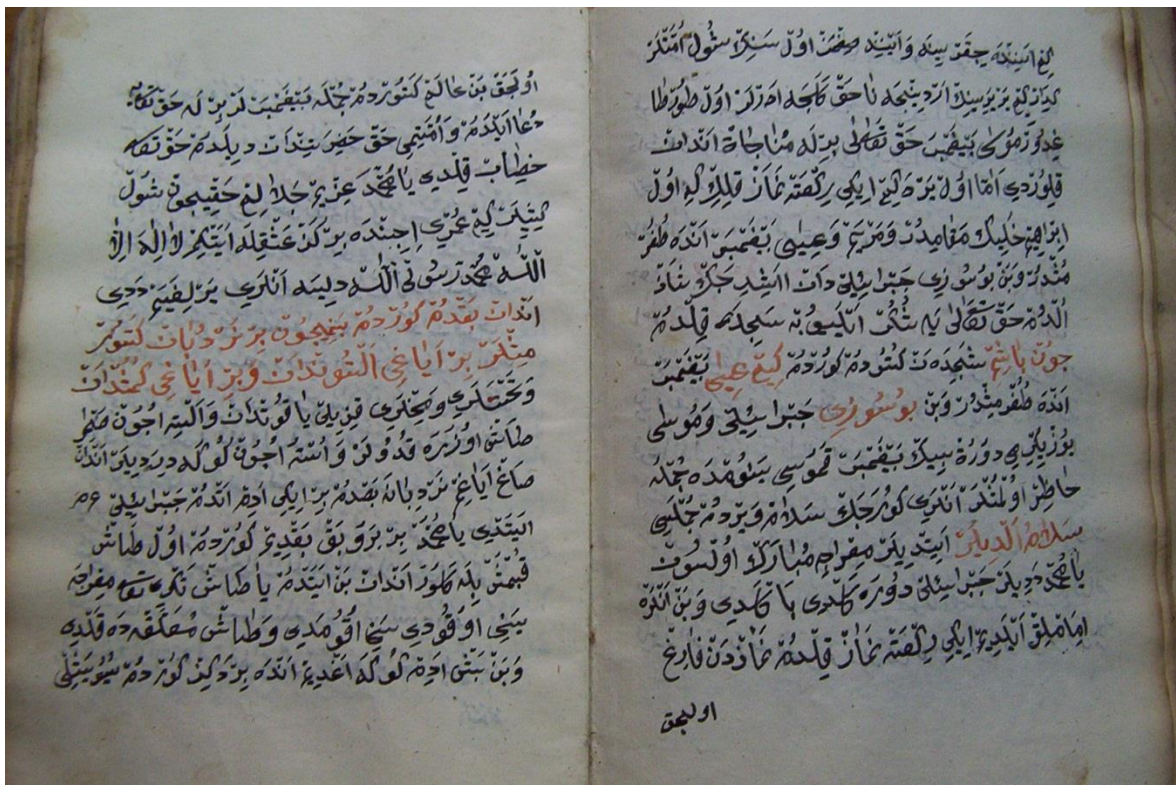 كم انينده چقر سيه و ايتيد صقمن اول سنك شول امتلر
كيدر كم بر يوسيلا اردينجه تا حق كلجه ادرلر اول طورطا
غدور موسى پيغمبر حق تعالى برله مناجاة اندان
قلوردي امّا اول يره كم ايكي ركعته نماز قللك كه اول
ابراهيم خليلك مقامدر و مريم و عيسى پيغمبر انده طغر
مشدر و بن بو سوزي جبرائيلدان اشيدجك شاذ
اولدم حق تعالى يه شكر ايليوبه سجده قلدم
چون باشم سجده دن كتوردم كوردم كم عيسى پيغمبر
انده طغرمشدر و بن بو سوزي جبرائيل و موسى
يوز يكرمي دورة بيك پيغمبر قموسى بتومده جمله
حاظر اولمشلر انلري كورجك سلام ويردم جملسي
سلام الديلر ايتديلر معراجه مبارك اولسون
يا محمد ديديلر جبرائيل دوره كلدي يا كلدي و بن انلره
امامليق ايلديم ايكي ركعته نماز قلدم نمازدن فارغ
اوليجق
اوليجق بن عالم كتوردم جمله پيغمبرلر برله حق تعالى
دعا ايلدم و امتيمي حق حضرتيندان ديلدم حق تعالى
خطاب قلدي يا محمد عزيم جلالم حقيچون شول
كيشيلر كم عمري اجنده بر كز عشقله ايتلر لا اله الا
الله محمد رسول الله ديسه انلري يرلغيم ددي
اندان بقدم كوردم بنمچون بر نردبان كتور
مشلر بر اياغي التوندان و بر اياغي كمشدان
و تختلري و يحلري قزيل ياقوتدان و النه اچون صخر
طاش اوزره قدولر و استه اچون كوكه ديرديلر اندان
صاغ اياغم نردبانه بقدم بر ايكي ادم اتدم جبرائيل عم
ايتدي يا محمد بر برو بق بقديم كوردم اول طاش
قبمش بله كلور اندان بن ايتدم يا طاش تكري تع معراجه
بيني اوقودي سني اقومدي و طاش معلقه ده قلدي
و بن بش ادم كوكه اغديم انده بر دكز كوردم سويتلي